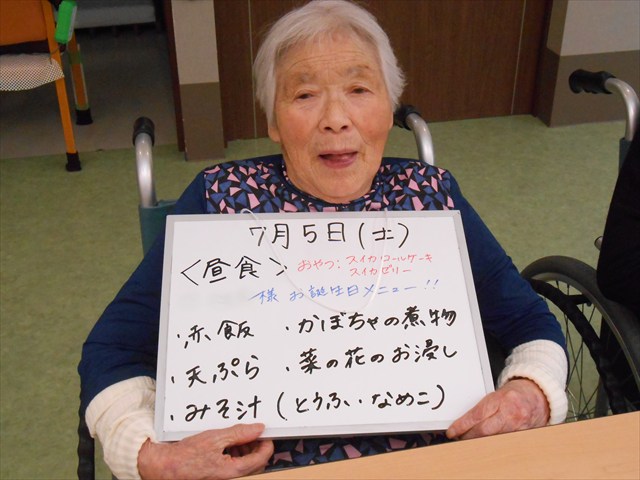 7月5日(土)
<昼食>
おやつ:スイカロールケーキ
スイカゼリー
様 お誕生日メニュー!!
・赤飯 ・かぼちゃの煮物
・天ぷら ・菜の花のお浸し
・みそ汁(とうふ・なめこ)